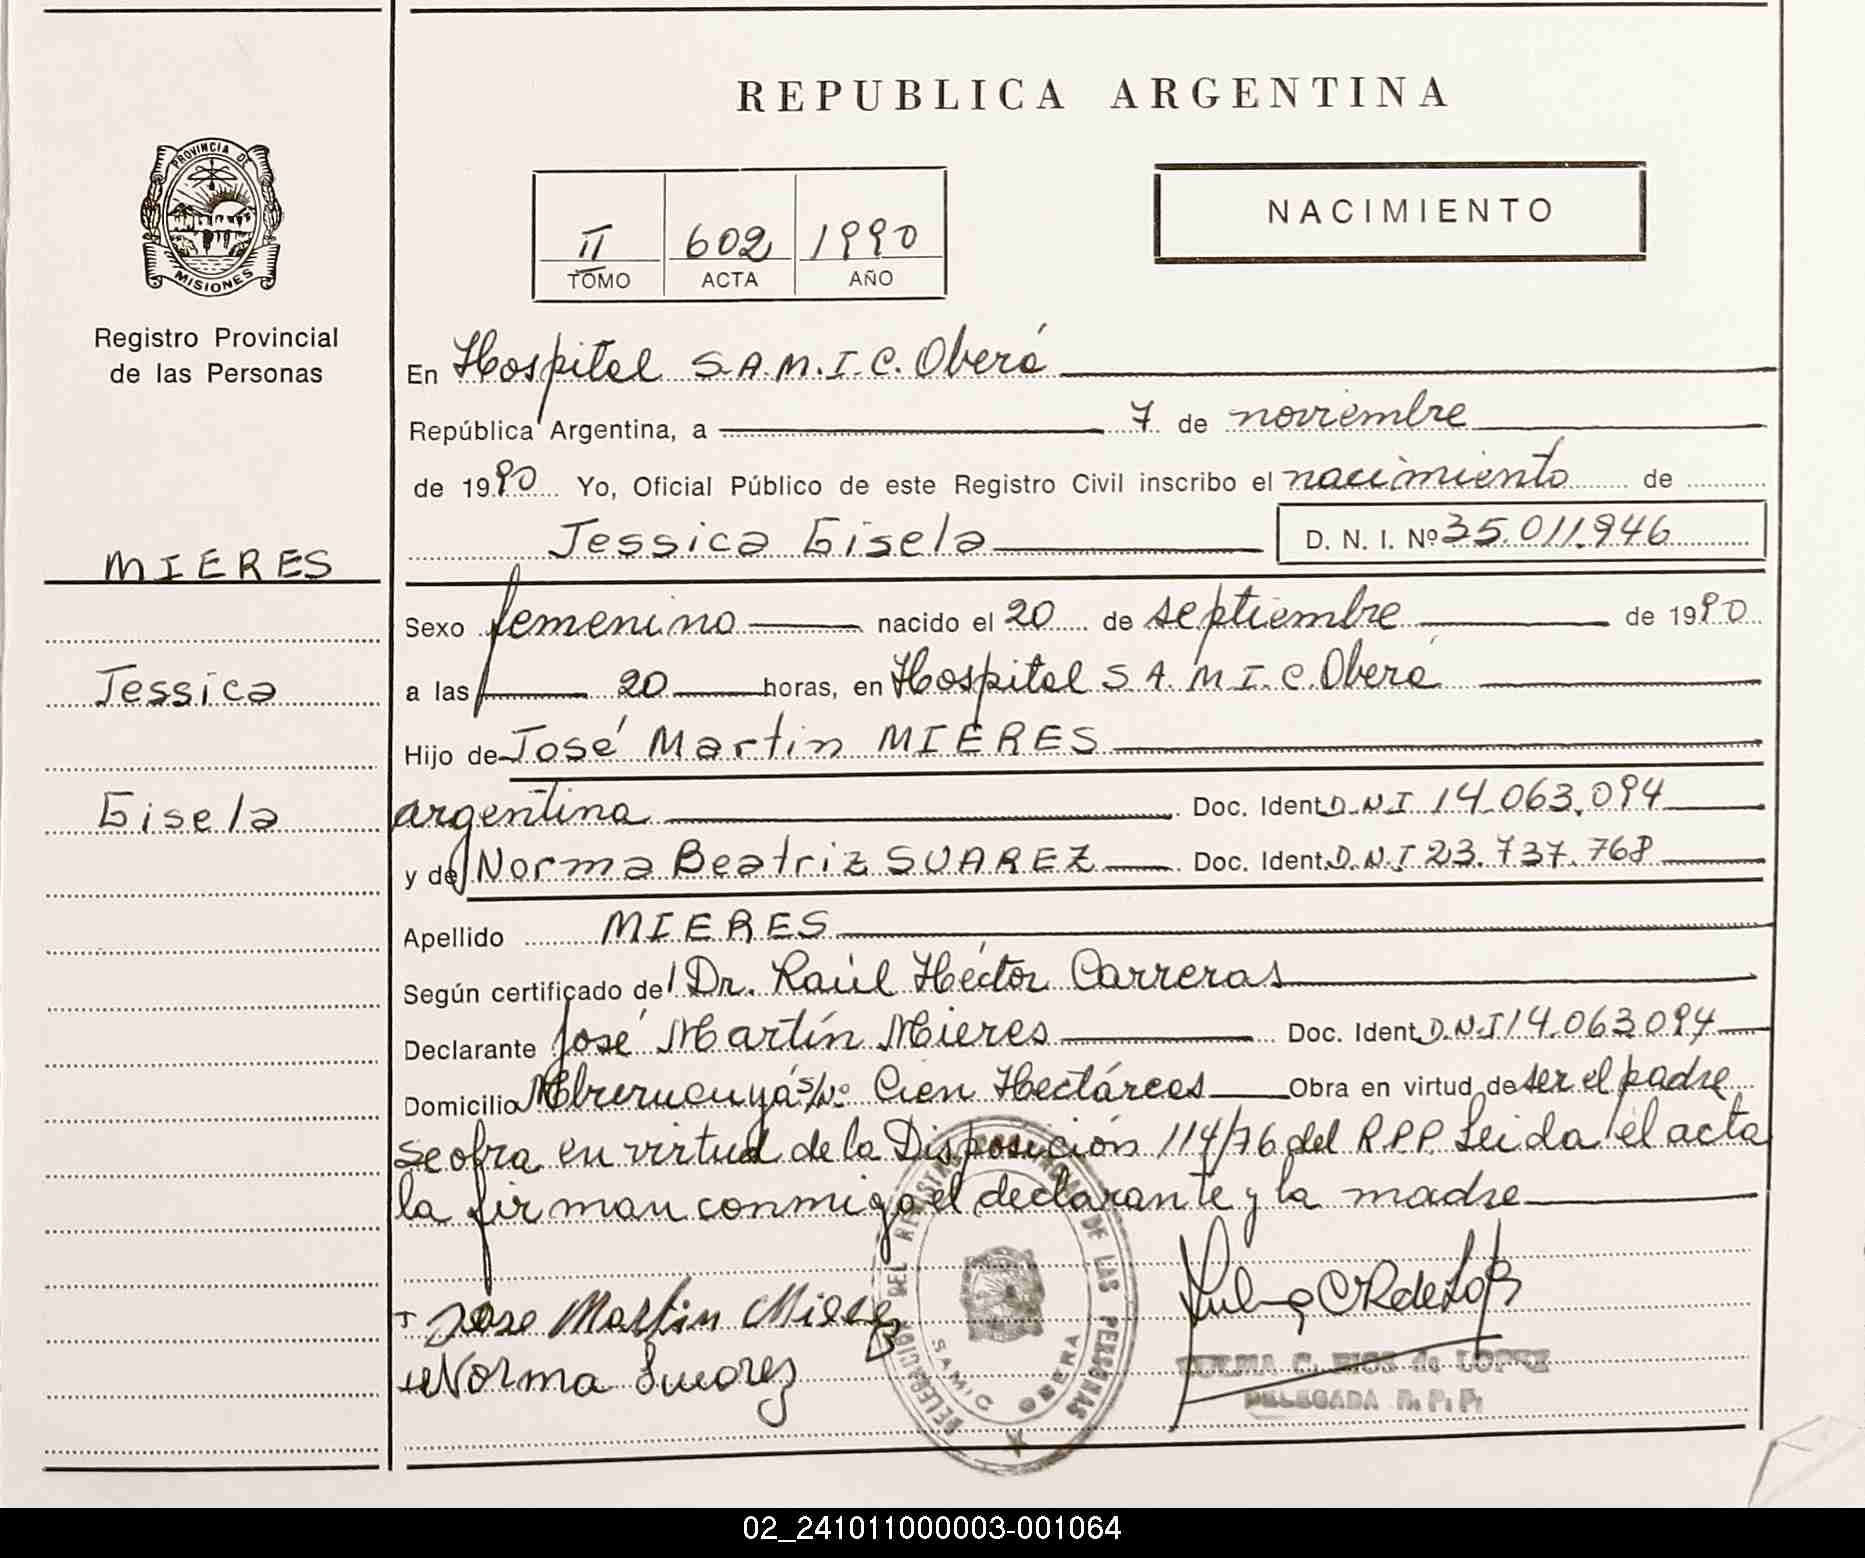 REPUBLICA ARGENTINA
PROVINCIA DE
MISIONES
Registro Provincial
de las Personas
II 602 1990
TOMO ACTA AÑO
NACIMIENTO
En Hospital S.A.M.I.C. Oberá
República Argentina, a 7 de noviembre
de 1990 Yo, Oficial Público de este Registro Civil inscribo el nacimiento de
Jessica Gisela D. N. I. Nº 35.011.946
MIERES
Sexo femenino nacido el 20 de septiembre de 1990
Jessica
a las 20 horas, en Hospital S.A.M.I.C. Oberá
Hijo de José Martin MIERES
Gisela
argentina Doc. Ident. D.N.I 14.063.094
y de Norma Beatriz SUAREZ Doc. Ident. D.N.I 23.737.768
Apellido MIERES
Según certificado de Dr. Raúl Héctor Carreras
Declarante José Martín Mieres Doc. Ident. D.N.I 14.063.094
Domicilio s/Nº Cien Hectáreas Obra en virtud de ser el padre
se obra en virtud de la Disposición 114/76 del R.P.P. Leida el acta
la firman conmigo el declarante y la madre
Jose Martin Mieres
Norma Suarez
DELEGACION DEL REGISTRO PROVINCIAL DE LAS PERSONAS
SAMIC OBERA
ZULMA C. RIOS de LOPEZ
DELEGADA R. P. P.
02_241011000003-001064